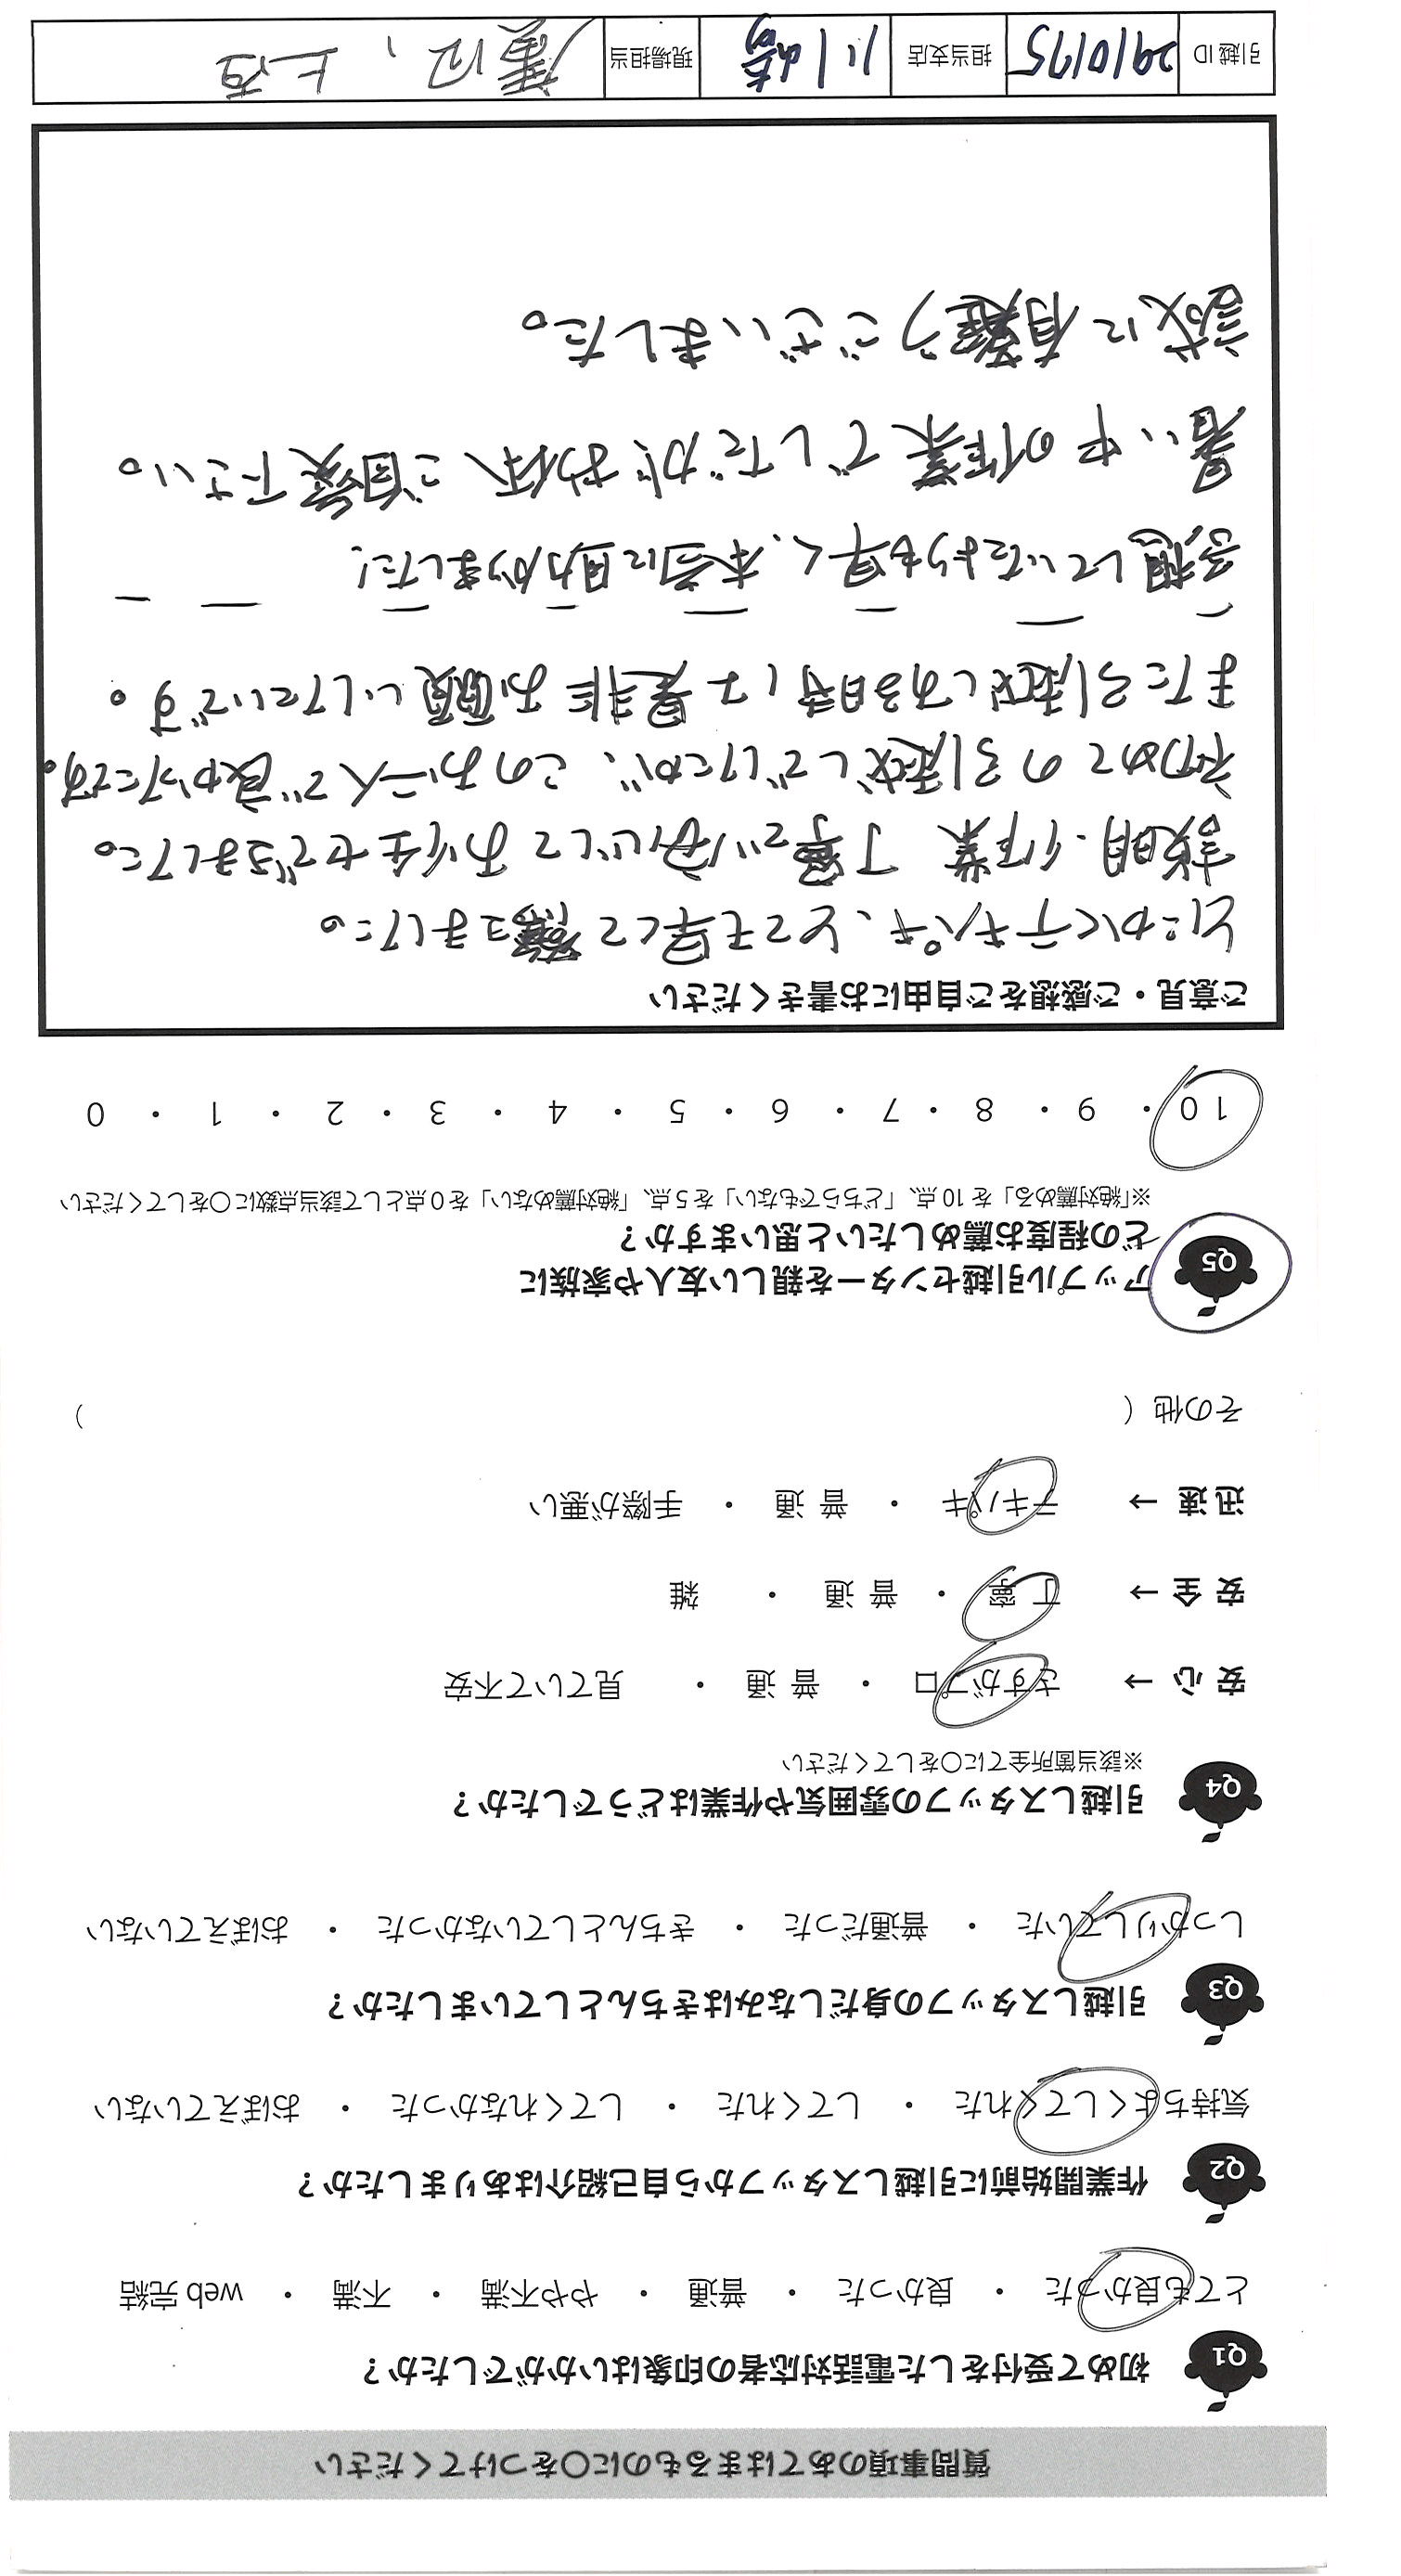 質問事項のあてはまるものに〇をつけてください
Q1 初めて受付をした電話対応者の印象はいかがでしたか？
とても良かった ・ 良かった ・ 普通 ・ やや不満 ・ 不満 ・ web 完結
Q2 作業開始前に引越しスタッフから自己紹介はありましたか？
気持ちよくしてくれた ・ してくれた ・ してくれなかった ・ おぼえていない
Q3 引越しスタッフの身だしなみはきちんとしていましたか？
しっかりしていた ・ 普通だった ・ きちんとしていなかった ・ おぼえていない
Q4 引越しスタッフの雰囲気や作業はどうでしたか？
※該当箇所全てに〇をしてください
安 心 → さすがプロ ・ 普 通 ・ 見ていて不安
安 全 → 丁 寧 ・ 普 通 ・ 雑
迅 速 → テキパキ ・ 普 通 ・ 手際が悪い
その他（ ）
Q5 アップル引越センターを親しい友人や家族に
どの程度お薦めしたいと思いますか？
※「絶対薦める」を 10 点、「どちらでもない」を 5 点、「絶対薦めない」を 0 点として該当点数に〇をしてください
10 ・ 9 ・ 8 ・ 7 ・ 6 ・ 5 ・ 4 ・ 3 ・ 2 ・ 1 ・ 0
ご意見・ご感想をご自由にお書きください
とにかくテキパキ、とても早くて驚きました。
説明・作業 丁寧で安心してお任せできました。
初めての引越しでしたが、このお二人で良かったです。
また引越しする時は是非お願いしたいです。
予想していたよりも早く、本当に助かりました！
暑い中の作業でしたがお体ご自愛下さい。
誠に有難うございました。
引越 ID 2910175 担当支店 川崎 現場担当